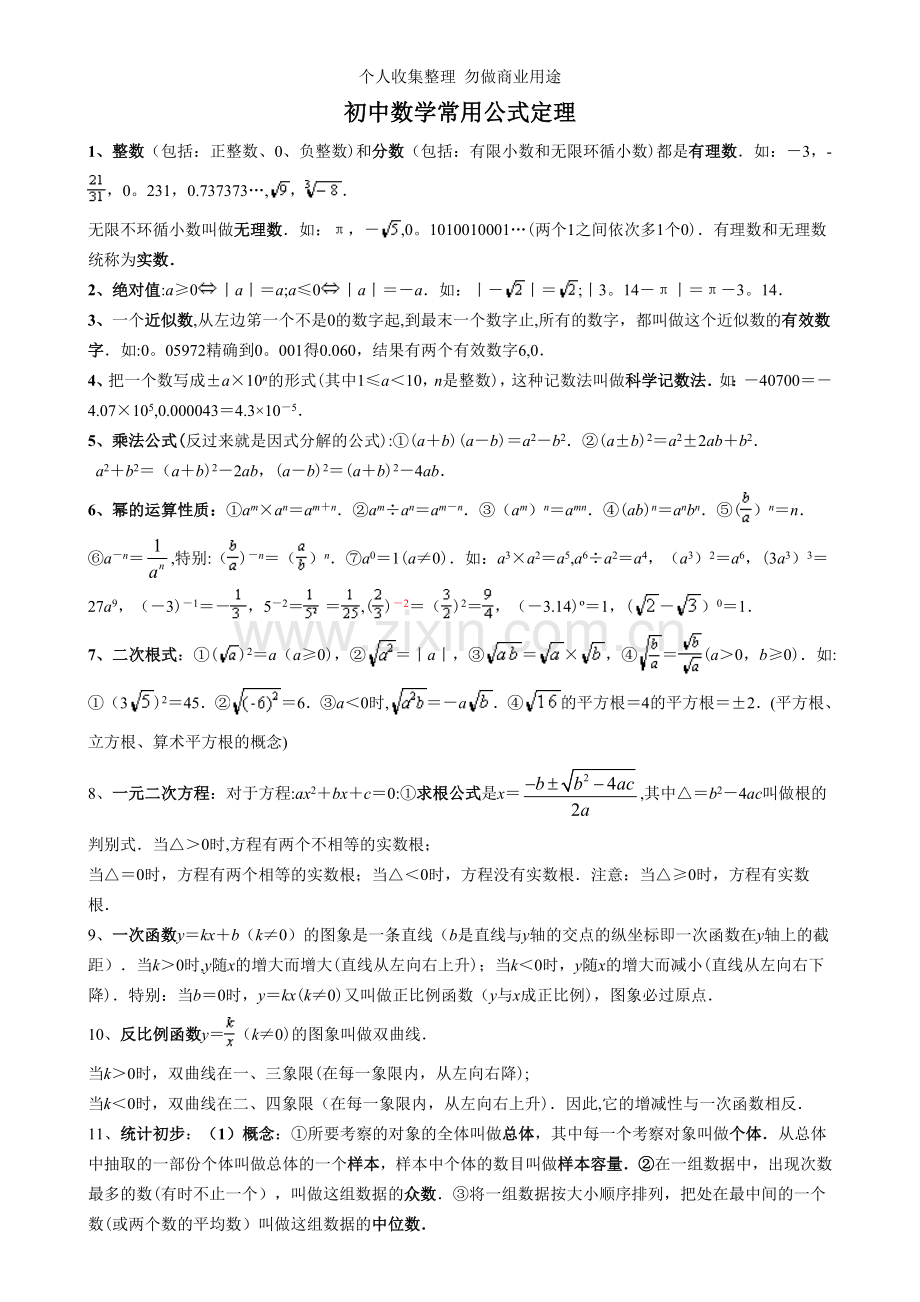 个人收集整理 勿做商业用途
初中数学常用公式定理
1、整数（包括：正整数、0、负整数)和分数（包括：有限小数和无限环循小数)都是有理数．如：－3，-
21/31，0。231，0.737373…,√9，∛-8．
无限不环循小数叫做无理数．如：π，－√5,0。1010010001…(两个1之间依次多1个0)．有理数和无理数
统称为实数．
2、绝对值:a≥0⇔丨a丨＝a;a≤0⇔丨a丨＝－a．如：丨－√2丨＝√2;丨3。14－π丨＝π－3。14．
3、一个近似数,从左边第一个不是0的数字起,到最末一个数字止,所有的数字，都叫做这个近似数的有效数
字．如:0。05972精确到0。001得0.060，结果有两个有效数字6,0．
4、把一个数写成±a×10ⁿ的形式(其中1≤a＜10，n是整数)，这种记数法叫做科学记数法．如：－40700＝－
4.07×10⁵,0.000043＝4.3×10⁻⁵．
5、乘法公式(反过来就是因式分解的公式):①(a＋b)(a－b)＝a²－b²．②(a±b)²＝a²±2ab＋b²．
a²＋b²＝（a＋b)²－2ab，(a－b)²＝(a＋b)²－4ab．
6、幂的运算性质：①aᵐ×aⁿ＝aᵐ⁺ⁿ．②aᵐ÷aⁿ＝aᵐ⁻ⁿ．③（aᵐ）ⁿ＝aᵐⁿ．④(ab)ⁿ＝aⁿbⁿ．⑤(b/a）ⁿ＝n．
⑥a⁻ⁿ＝1/aⁿ,特别:（b/a)⁻ⁿ＝（a/b）ⁿ．⑦a⁰＝1(a≠0)．如：a³×a²＝a⁵,a⁶÷a²＝a⁴，（a³）²＝a⁶，(3a³）³＝
27a⁹，（－3)⁻¹＝－1/3，5⁻²＝1/5²＝1/25,(2/3)⁻²＝（3/2)²＝9/4，（－3.14)º＝1，（√2－√3）⁰＝1．
7、二次根式：①(√a）²＝a（a≥0)，②√a²＝丨a丨，③√ab＝√a×√b，④√(b/a)＝√b/√a(a＞0，b≥0)．如:
①（3√5)²＝45．②√(-6)²＝6．③a＜0时,√a²b＝－a√b．④√16的平方根＝4的平方根＝±2．(平方根、
立方根、算术平方根的概念)
8、一元二次方程：对于方程:ax²＋bx＋c＝0:①求根公式是x＝(−b±√(b²−4ac))/2a,其中△＝b²－4ac叫做根的
判别式．当△＞0时,方程有两个不相等的实数根；
当△＝0时，方程有两个相等的实数根；当△＜0时，方程没有实数根．注意：当△≥0时，方程有实数
根．
9、一次函数y＝kx＋b（k≠0）的图象是一条直线（b是直线与y轴的交点的纵坐标即一次函数在y轴上的截
距）．当k＞0时,y随x的增大而增大(直线从左向右上升)；当k＜0时，y随x的增大而减小(直线从左向右下
降)．特别：当b＝0时，y＝kx(k≠0)又叫做正比例函数（y与x成正比例)，图象必过原点．
10、反比例函数y＝k/x（k≠0)的图象叫做双曲线．
当k＞0时，双曲线在一、三象限(在每一象限内，从左向右降);
当k＜0时，双曲线在二、四象限（在每一象限内，从左向右上升)．因此,它的增减性与一次函数相反．
11、统计初步：（1）概念：①所要考察的对象的全体叫做总体，其中每一个考察对象叫做个体．从总体
中抽取的一部份个体叫做总体的一个样本，样本中个体的数目叫做样本容量．②在一组数据中，出现次数
最多的数(有时不止一个），叫做这组数据的众数．③将一组数据按大小顺序排列，把处在最中间的一个
数(或两个数的平均数）叫做这组数据的中位数．
www.zixin.com.cn